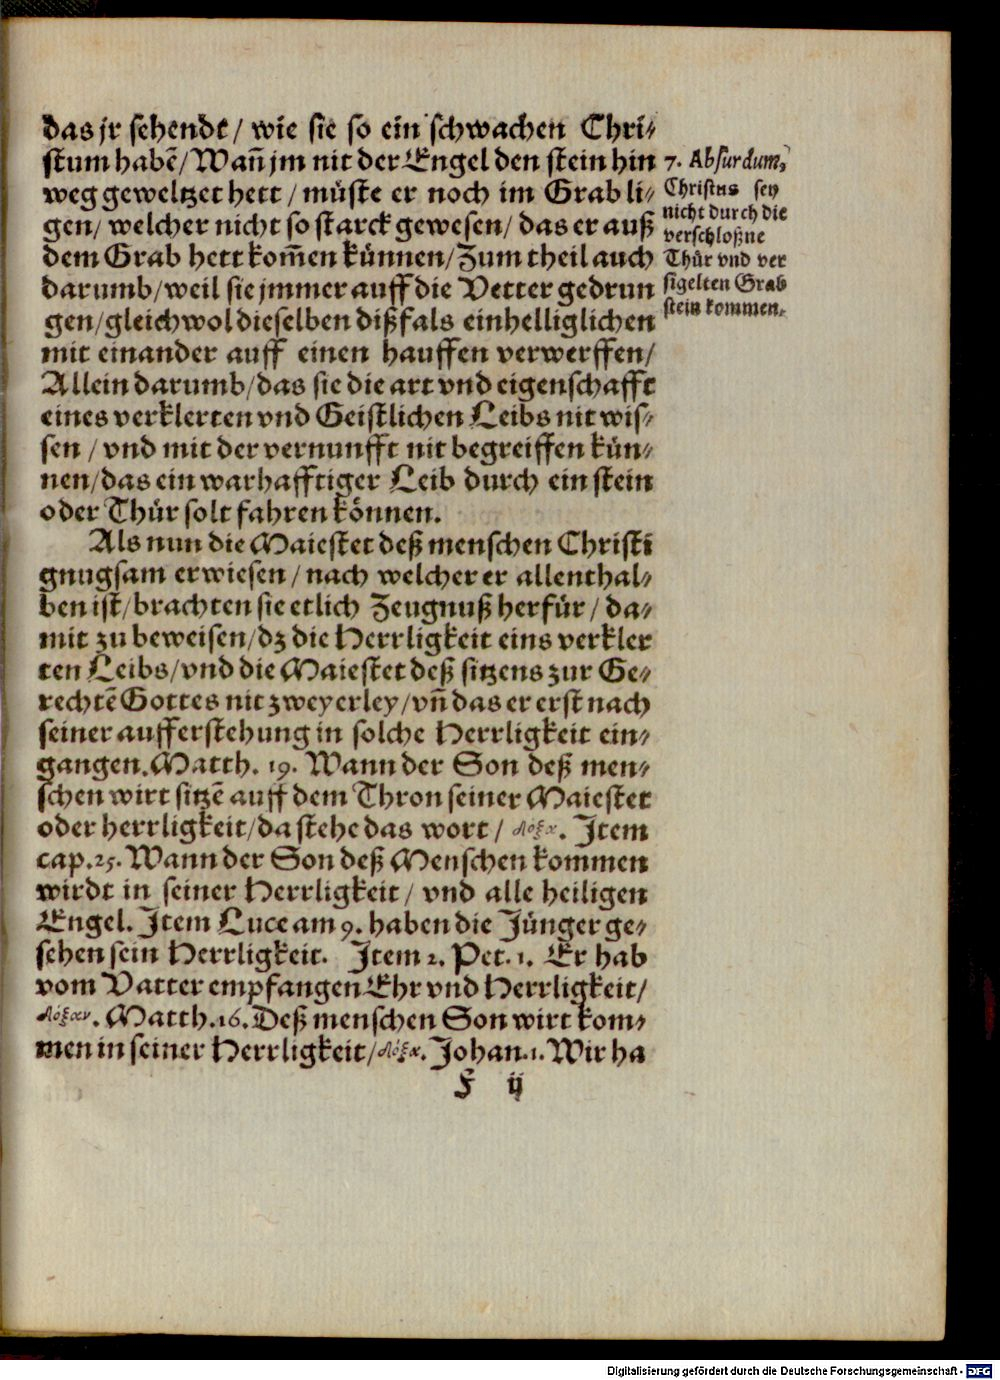 das jr sehendt / wie sie so ein schwachen Chri⸗
stum habẽ / Wañ jm nit der Engel den stein hin
weg geweltzet hett / müste er noch im Grab li⸗
gen / welcher nicht so starck gewesen / das er auß
dem Grab hett kom̃en künnen / Zum theil auch
darumb / weil sie jmmer auff die Vetter gedrun
gen / gleichwol dieselben dißfals einhelliglichen
mit einander auff einen hauffen verwerffen /
Allein darumb / das sie die art vnd eigenschafft
eines verklerten vnd Geistlichen Leibs nit wis⸗
sen / vnd mit der vernunfft nit begreiffen kün⸗
nen / das ein warhafftiger Leib durch ein stein
oder Thür solt fahren können.
7. Absurdum,
Christus sey
nicht durch die
verschloßne
Thür vnd ver
sigelten Grab
stein kommen.
Als nun die Maiestet deß menschen Christi
gnugsam erwiesen / nach welcher er allenthal⸗
ben ist / brachten sie etlich Zeugnuß herfür / da⸗
mit zu beweisen / dz die Herrligkeit eins verkler
ten Leibs / vnd die Maiestet deß sitzens zur Ge⸗
rechtẽ Gottes nit zweyerley / vñ das er erst nach
seiner aufferstehung in solche Herrligkeit ein⸗
gangen. Matth. 19. Wann der Son deß men⸗
schen wirt sitzẽ auff dem Thron seiner Maiestet
oder herrligkeit / da stehe das wort / δόξα. Item
cap. 25. Wann der Son deß Menschen kommen
wirdt in seiner Herrligkeit / vnd alle heiligen
Engel. Item Luce am 9. haben die Jünger ge⸗
sehen sein Herrligkeit. Item 2. Pet. 1. Er hab
vom Vatter empfangen Ehr vnd Herrligkeit /
δόξαν. Matth. 16. Deß menschen Son wirt kom⸗
men in seiner Herrligkeit / δόξα. Johan. 1. Wir ha
F ij
Digitalisierung gefördert durch die Deutsche Forschungsgemeinschaft - DFG